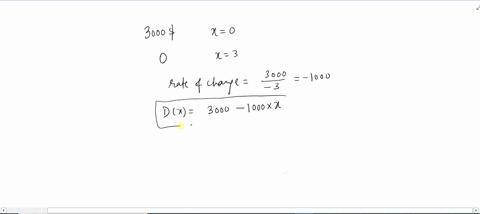 3000 $ x = 0
0 x = 3
rate of change = 3000 / -3 = -1000
D(x) = 3000 - 1000 × x